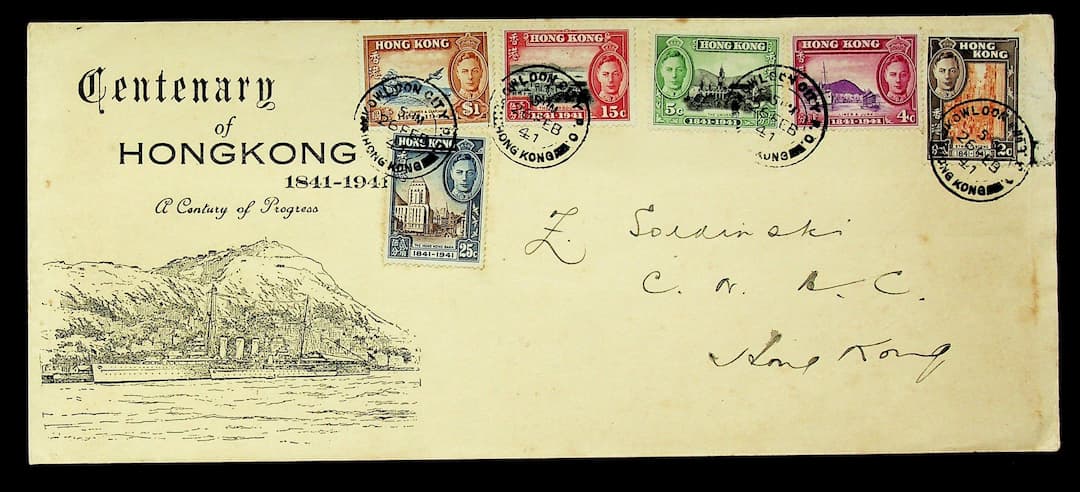 Centenary
of
HONGKONG
1841-1941
A Century of Progress
HONG KONG
$1
HONG KONG
15c
1841-1941
HONG KONG
5c
1841-1941
HONG KONG
4c
1841-1941
HONG KONG
2c
1841-1941
HONG KONG
THE HONG KONG BANK
25c
1841-1941
KOWLOON CITY P.O.
5 PM
26 FEB
41
HONG KONG
KOWLOON CITY P.O.
5 PM
FEB
41
HONG KONG
KOWLOON CITY P.O.
FEB
41
KONG
KOWLOON CITY
5
41
HONG KONG
Z. Soldinski
C. N. A. C.
Hong Kong